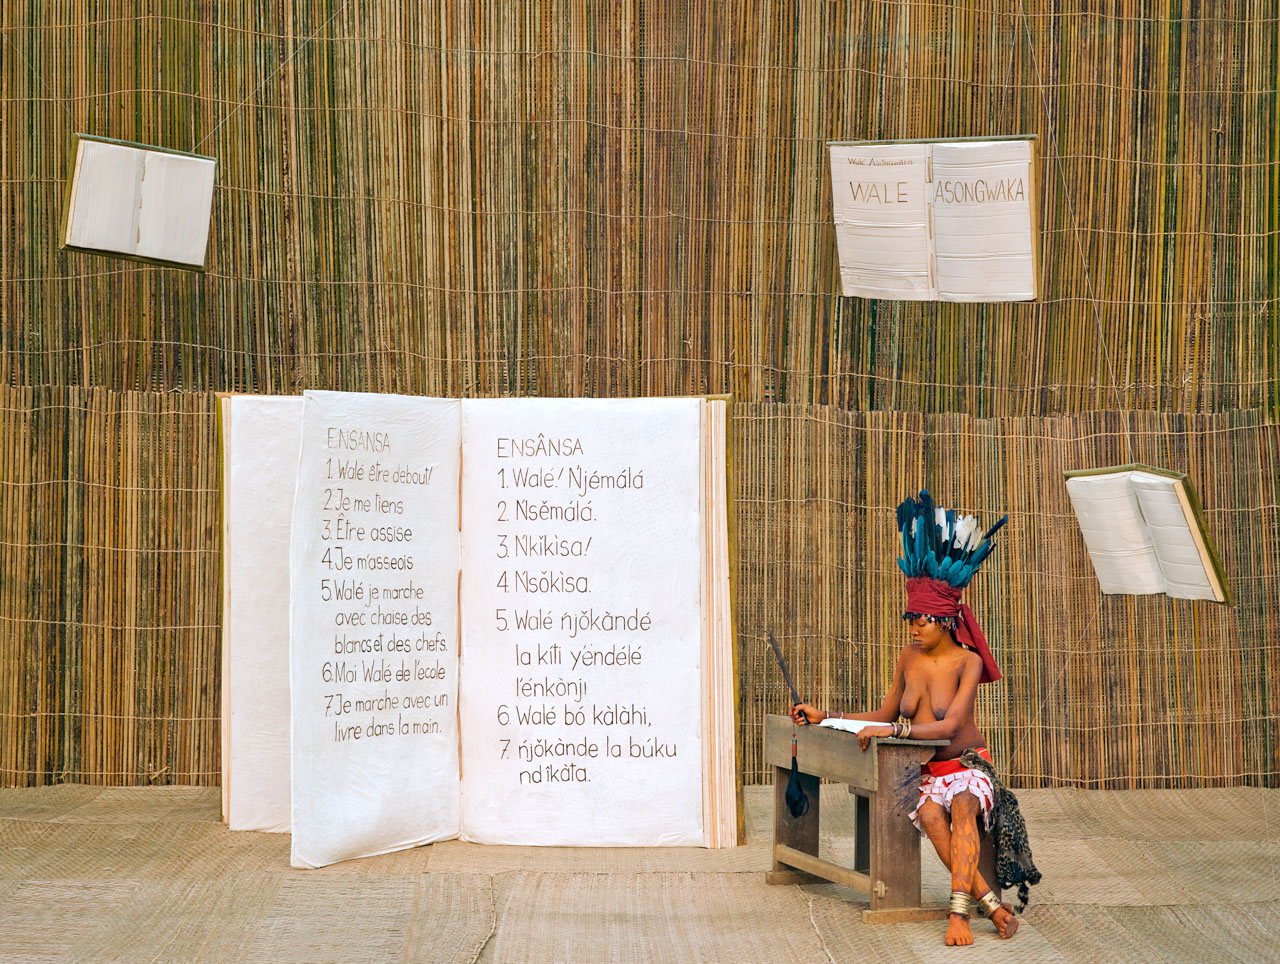 Walé Asongwaka
WALE ASONGWAKA
ENSANSA
1. Walé être debout!
2. Je me tiens
3. Être assise
4. Je m'asseois
5. Walé je marche
avec chaise des
blancs et des chefs.
6. Moi Walé de l'école
7. Je marche avec un
livre dans la main.
ENSÂNSA
1. Walé! Ńjémálá
2. Ńsěmálá.
3. Nkǐkìsa!
4. Ńsǒkìsa.
5. Walé ńjǒkàndé
la kíti y'ěndélé
l'énkònji
6. Walé bó kàlàhi,
7. ńjǒkànde la búku
nd'íkàta.